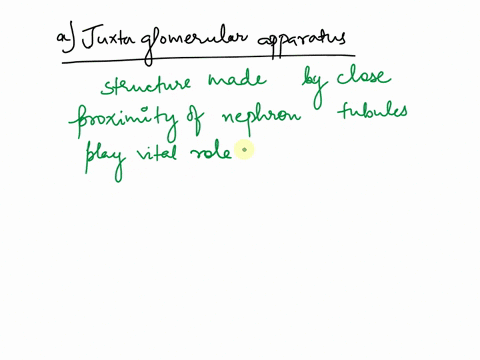 a) Juxta glomerular apparatus
structure made by close
proximity of nephron tubules
play vital role